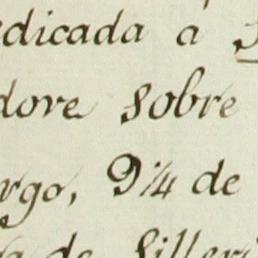 edicada a
dore sobre
rgo, 9¼ de
a de Silleri